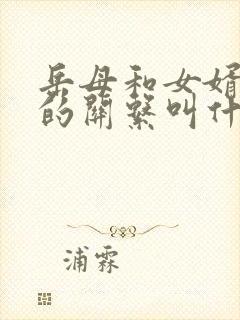 岳母和女婿
的關繫叫什
浦霖